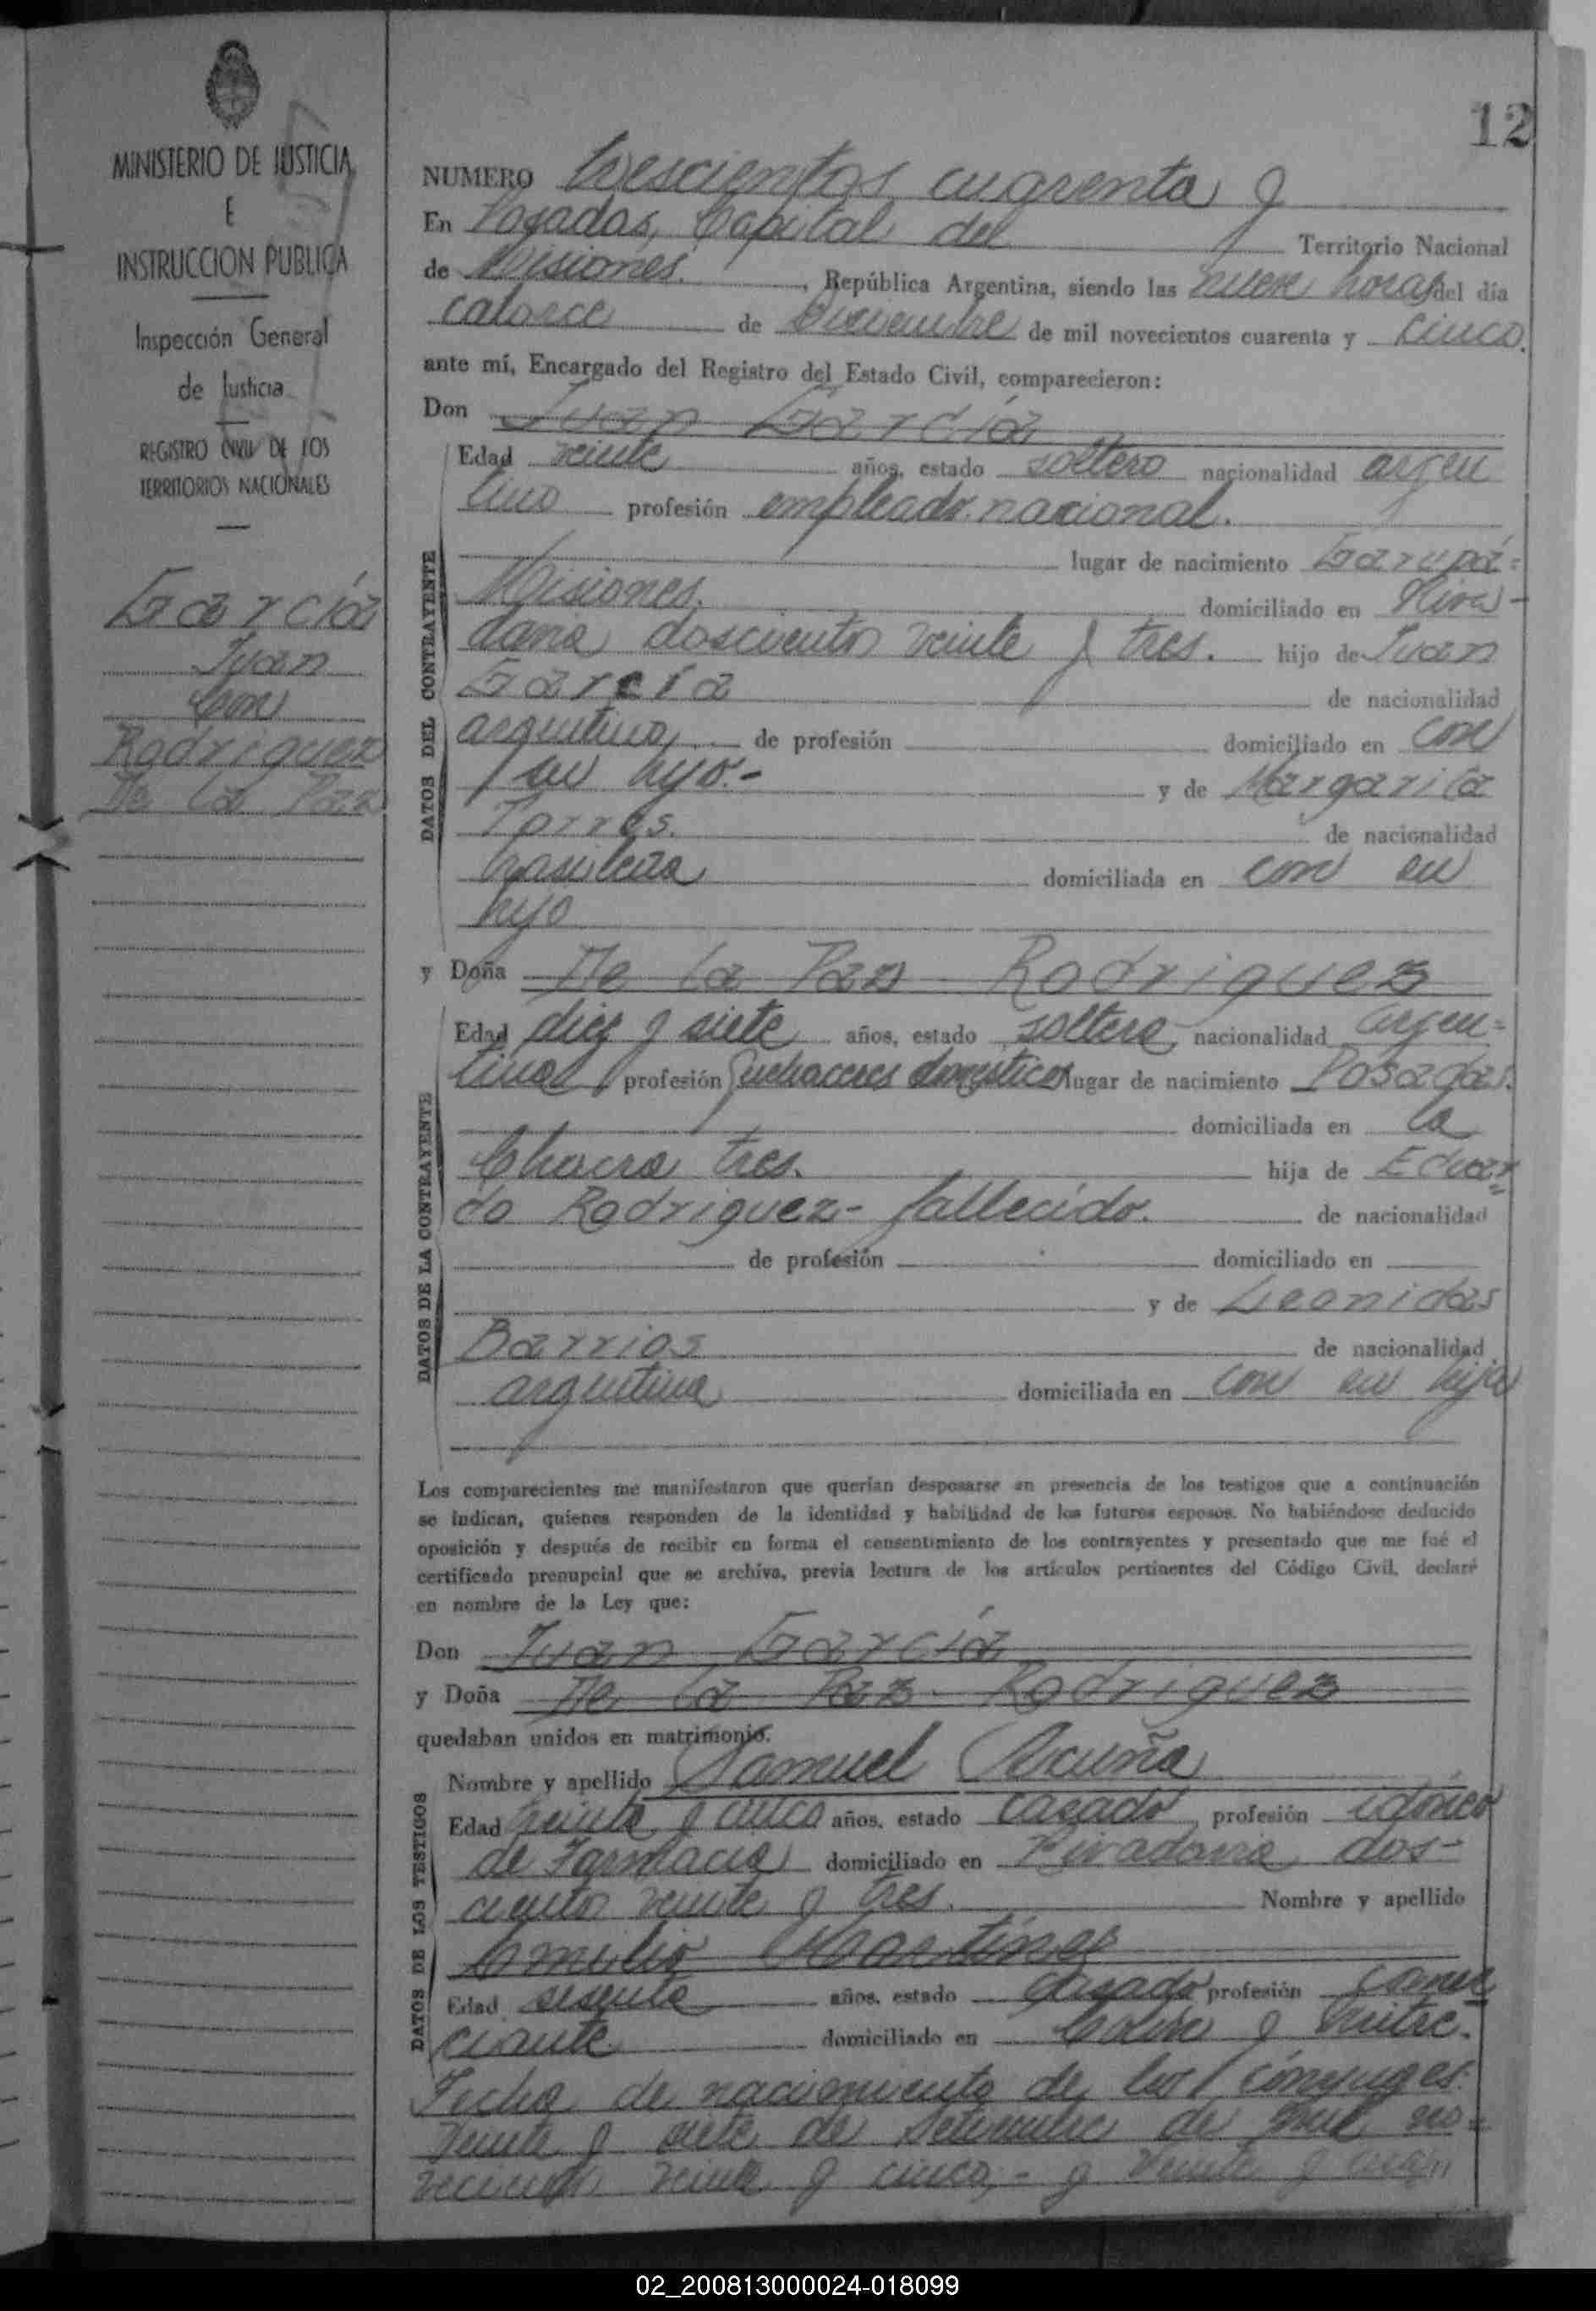 MINISTERIO DE JUSTICIA
E
INSTRUCCION PUBLICA
Inspección General
de Justicia
REGISTRO CIVIL DE LOS
TERRITORIOS NACIONALES
García
Juan
Con
Rodriguez
De la Paz
12
NUMERO trescientos cuarenta y
En Posadas, Capital del Territorio Nacional
de Misiones. , República Argentina, siendo las nueve horas del día
catorce de Diciembre de mil novecientos cuarenta y cinco.
ante mí, Encargado del Registro del Estado Civil, comparecieron:
Don Juan García
DATOS DEL CONTRAYENTE
Edad veinte años, estado soltero nacionalidad argen
tino profesión empleado nacional.
lugar de nacimiento Garupá-
Misiones. domiciliado en Riva-
davia doscientos veinte y tres. hijo de Juan
García de nacionalidad
argentino, de profesión domiciliado en con
su hijo.- y de Margarita
Torres. de nacionalidad
brasileña domiciliada en con su
hijo
y Doña De la Paz Rodriguez
DATOS DE LA CONTRAYENTE
Edad diez y siete años, estado soltera, nacionalidad argen-
tina profesión Quehaceres domésticos lugar de nacimiento Posadas.
domiciliada en la
Chacra tres. hija de Eduar
do Rodriguez- fallecido. de nacionalidad
de profesión domiciliado en
y de Leonidas
Barrios de nacionalidad
argentina domiciliada en con su hija
Los comparecientes me manifestaron que querían desposarse en presencia de los testigos que a continuación
se indican, quienes responden de la identidad y habilidad de los futuros esposos. No habiéndose deducido
oposición y después de recibir en forma el consentimiento de los contrayentes y presentado que me fué el
certificado prenupcial que se archiva, previa lectura de los artículos pertinentes del Código Civil, declaré
en nombre de la Ley que:
Don Juan García
y Doña De la Paz Rodriguez
quedaban unidos en matrimonio.
DATOS DE LOS TESTIGOS
Nombre y apellido Samuel Acuña
Edad treinta y cinco años, estado casado profesión idóneo
de Farmacia domiciliado en Rivadavia dos-
cientos veinte y tres. Nombre y apellido
Emilio Martínez
Edad sesenta años, estado casado profesión comer
ciante. domiciliado en Colón y Mitre.
Fecha de nacimiento de los cónyuges:
Veinte y siete de Setiembre de mil no-
vecientos veinte y cinco,- y veinte y
02_200813000024-018099